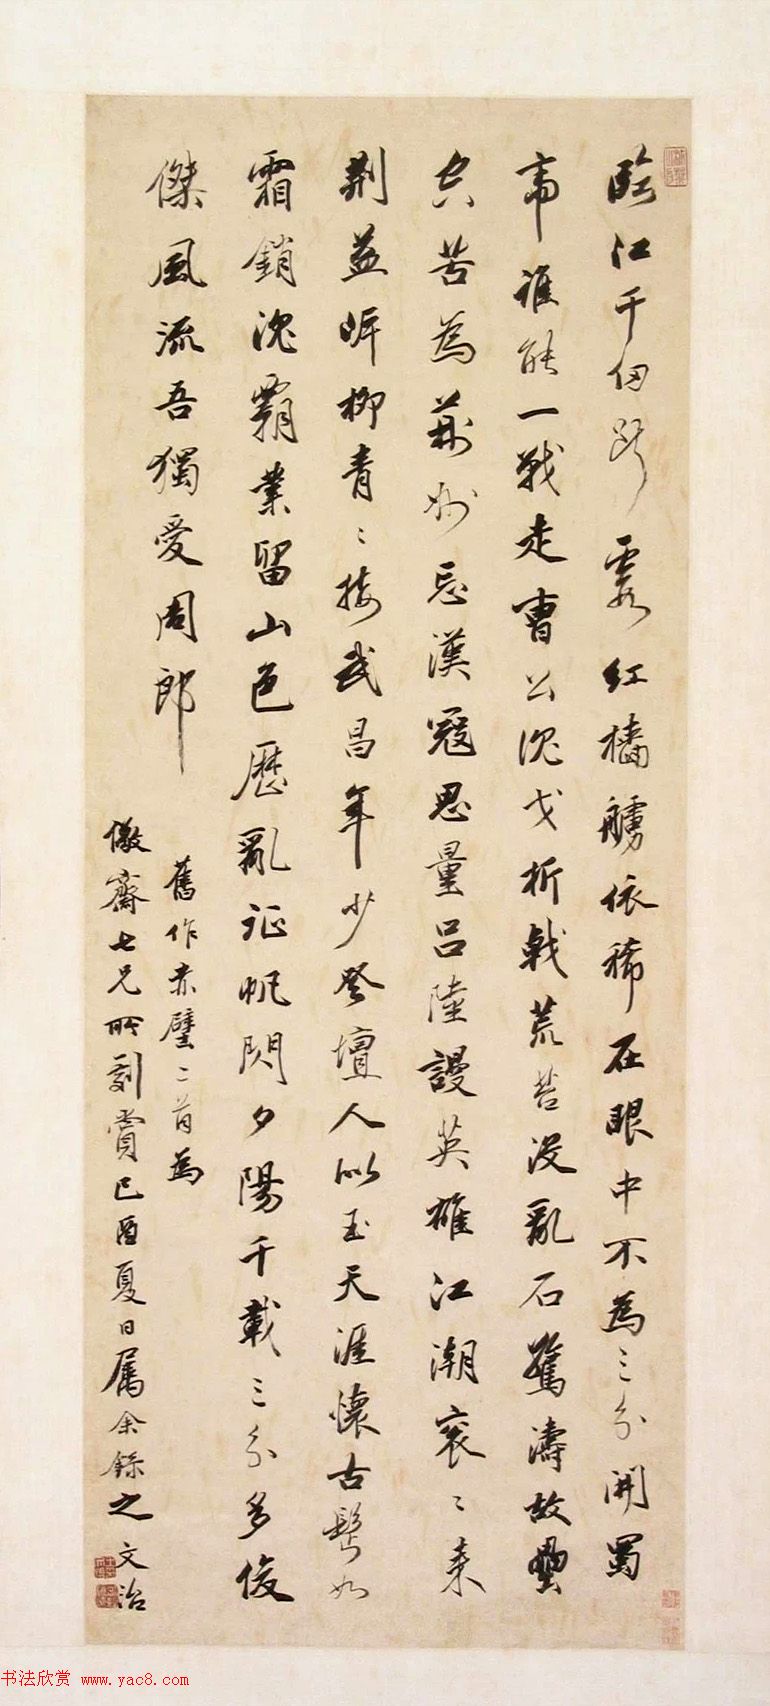 臨江千仞斷霞紅檣艣依稀在眼中不為三分開蜀
帝誰能一戰走曹公沈戈折戟荒苔没亂石驚濤故壘
空苦為荊州忘漢寇思量呂陸謾英雄江潮衮〻来
荊益岸柳青〻接武昌年少登壇人似玉天涯懷古鬢如
霜銷沈霸業留山色歷亂征帆閃夕陽千載三分多俊
傑風流吾獨愛周郎
舊作赤壁二首為
儆齋七兄所刻賞己酉夏日屬余錄之文治
书法欣赏 www.yac8.com